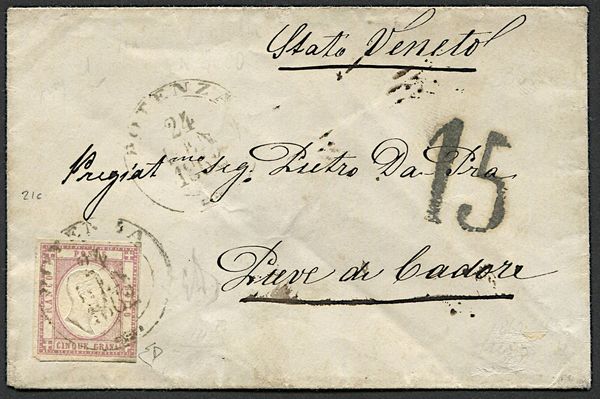 Stato Veneto
POTENZA
24
GEN
Pregiat.mo sig. Pietro Da Pra
15
Pieve di Cadore
21c
24
FRANCO
CINQUE GRANA